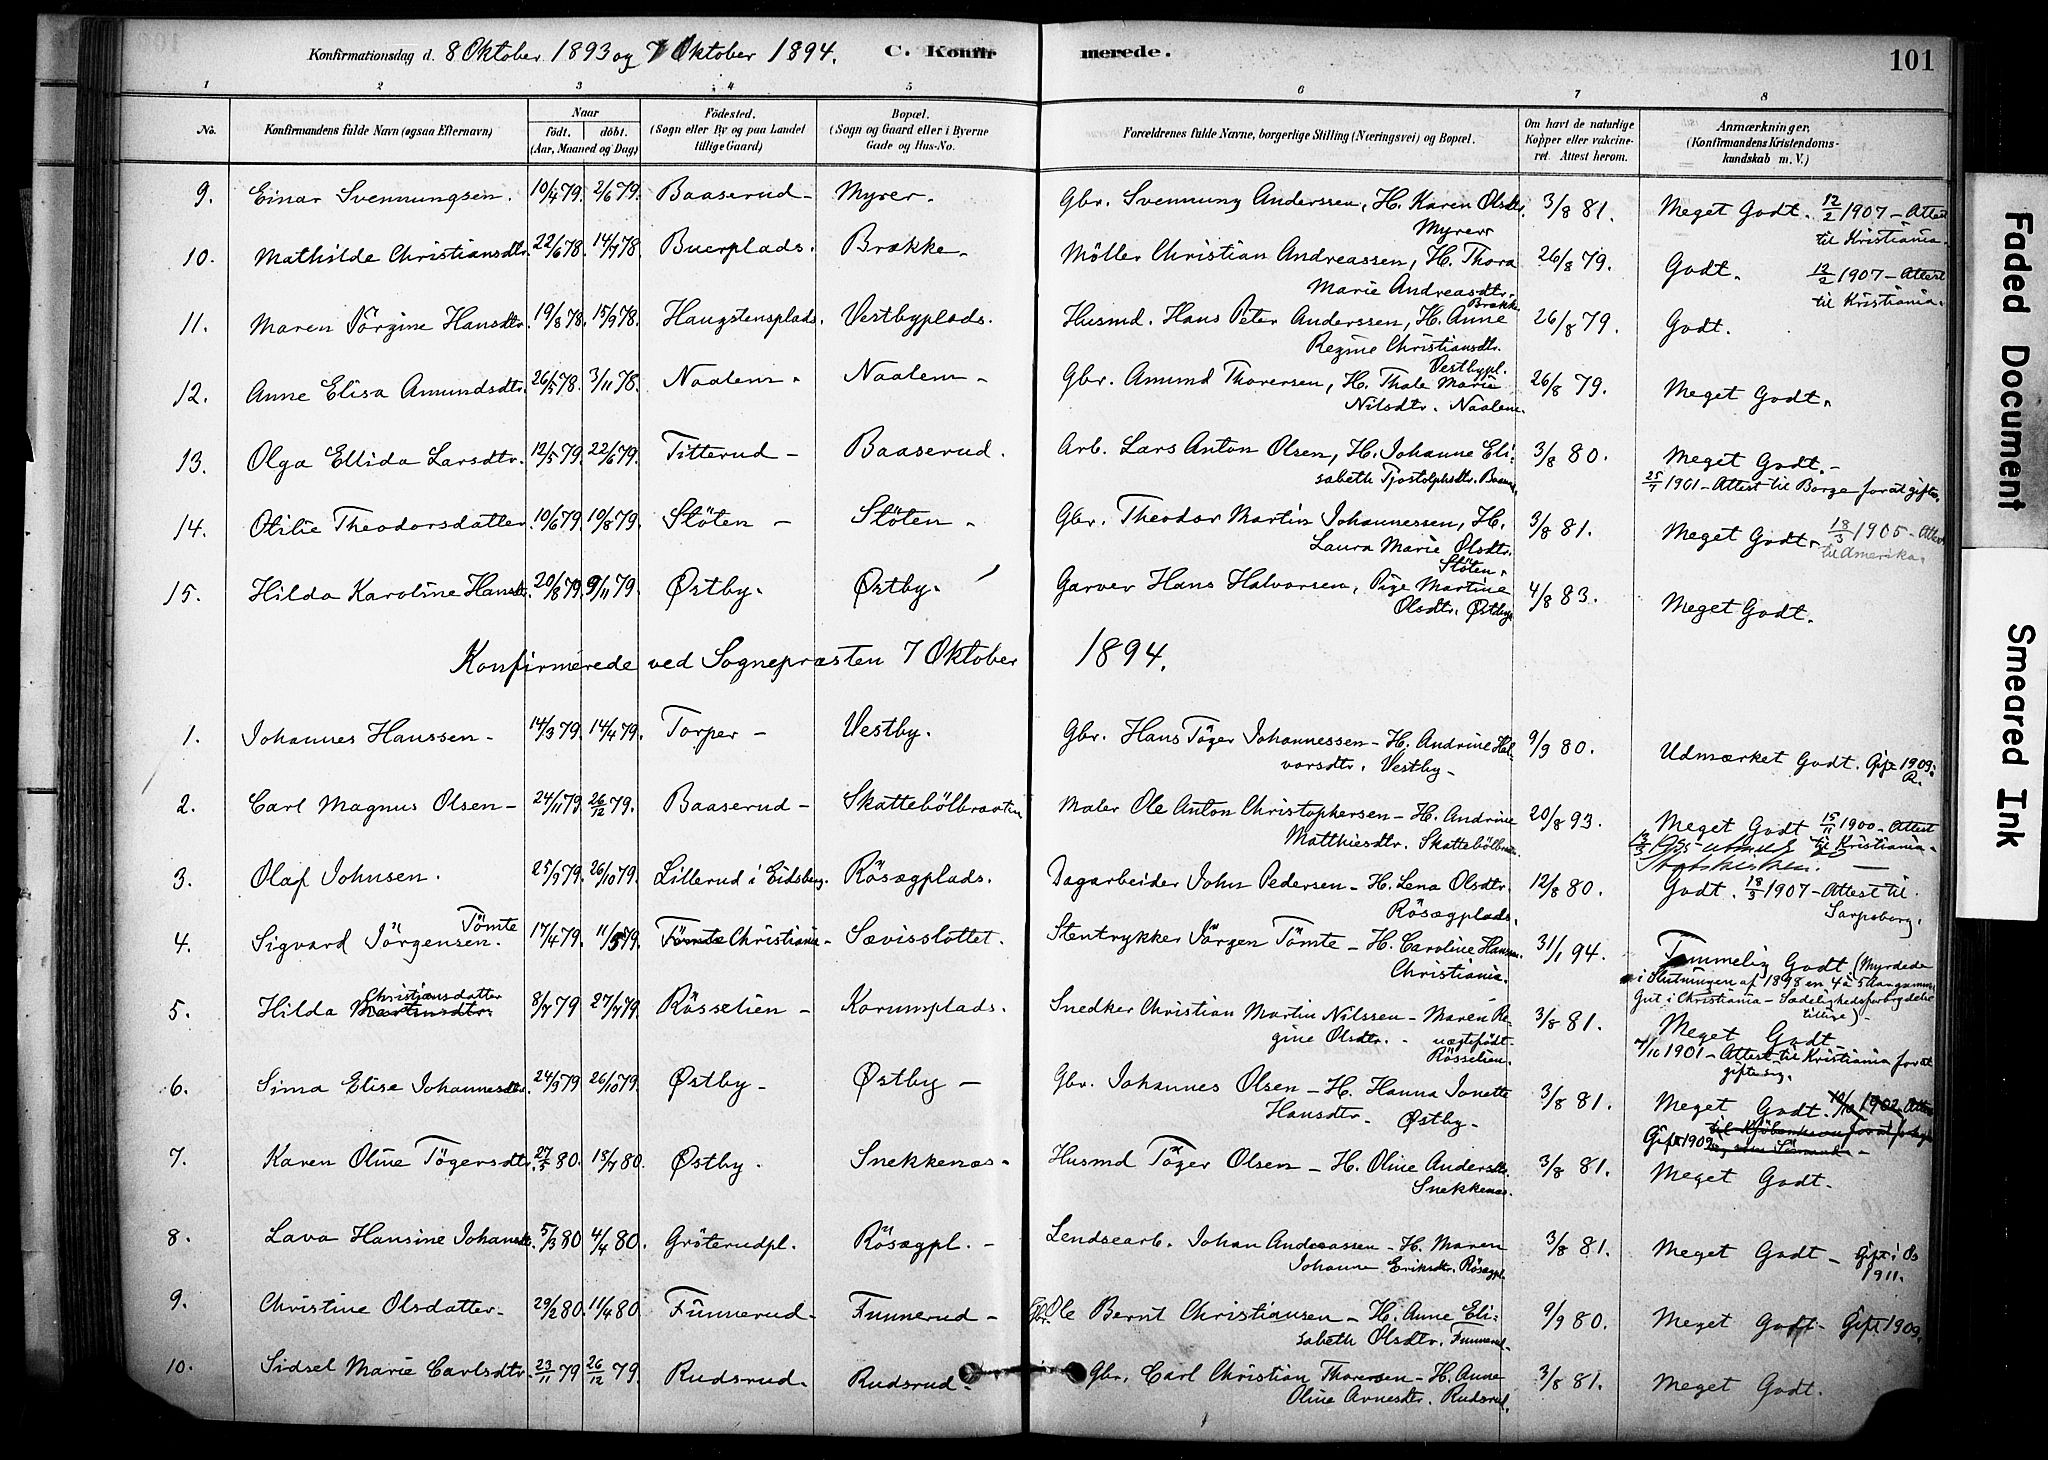 Konfirmationsdag d. 8 Oktober 1893 og 7 Oktober 1894. C. Konfirmerede. 101
1 2 3 4 5 6 7 8
No. Konfirmandens fulde Navn (ogsaa Efternavn) Naar født. døbt. (Aar, Maaned og Dag) Födested. (Sogn eller By og paa Landet tillige Gaard) Bopæl. (Sogn og Gaard eller i Byerne Gade og Hus-No. Forældrenes fulde Navne, borgerlige Stilling (Næringsvei) og Bopæl. Om havt de naturlige Kopper eller vakcineret. Attest herom. Anmærkninger, (Konfirmandens Kristendomskundskab m. V.)
9. Einar Svennungsen. 10/4 79. 2/6 79. Baaserud - Myrer. Gbr. Svennung Anderssen, H. Karen Olsdtr. Myrer 3/8 81. Meget Godt. 12/2 1907 - Attest til Kristiania.
10. Mathilde Christiansdtr. 22/6 78. 14/7 78. Buerplads. Brække. Möller Christian Andreassen, H. Thora Marie Andreasdtr. Brække 26/8 79. Godt. 12/2 1907 - Attest til Kristiania.
11. Maren Jörgine Hansdtr. 19/8 78. 15/9 78. Haugstensplads. Vestbyplads. Husmd. Hans Peter Anderssen, H. Anne Regine Christiansdtr. Vestbypl. 26/8 79. Godt.
12. Anne Elisa Amundsdtr. 26/5 78. 3/11 78. Naalem. Naalem - Gbr. Amund Thoversen, H. Thale Marie Nilsdtr. Naalem. 26/8 79. Meget Godt.
13. Olga Ellida Larsdtr. 12/5 79. 22/6 79. Titterud - Baaserud. Arb. Lars Anton Olsen, H. Johanne Elisabeth Tjostolphsdtr. 3/8 80. Meget Godt. - 25/7 1901 - Attest til Borge for at gifte.
14. Otilie Theodorsdatter 10/6 79. 10/8 79. Stöten - Stöten. Gbr. Theodor Martin Johannessen, H. Laura Marie Olsdtr. Stöten. 3/8 81. Meget Godt. 18/3 1905 - Attest til Amerika.
15. Hilda Karoline Hansdtr. 20/8 79. 9/11 79. Østby. Østby. Garver Hans Halvorsen, Pige Martine Olsdtr. Østby 4/8 83. Meget Godt.
Konfirmerede ved Sognepræsten 7 Oktober 1894.
1. Johannes Hanssen - 14/3 79. 14/4 79. Torper - Vestby. Gbr. Hans Töger Johannessen - H. Andrine Halvorsdtr. Vestby - 9/9 80. Udmærket Godt. Gift 1909.
2. Carl Magnus Olsen - 24/11 79. 26/12 79. Baaserud - Skattebölbraaten Maler Ole Anton Christophersen - H. Andrine Matthiesdtr. 20/8 93. Meget Godt 15/11 1900 - Attest til Kristiania.
3. Olaf Johnsen. 25/9 79. 26/10 79. Lillerud i Eidsberg. Rösægplads. Dagarbeider John Pedersen - H. Lena Olsdtr. Rösægplads. 12/8 80. Godt. 18/3 1907 - Attest til Sarpsborg.
4. Sigvard Jörgensen Tömte. 17/4 79. 11/5 79. Tömte Christiania - Sævisslottet. Stentrykker Jörgen Tömte - H. Caroline Hansen. Christiania. 31/1 94. Temmelig Godt (Myrdede i Slutningen af 1898 en 4 à 5 Aar gammel Gut i Christiania - Sædelighedsforbrydelse tillige).
5. Hilda Martinsdtr. Christiansdatter 8/7 79 27/7 79. Rösselien - Korumplads. Snedker Christian Martin Nilssen - Maren Regine Olsdtr. - uægtefödt - Rösselien. 3/8 81. Meget Godt - 7/10 1901 - Attest til Kristiania for at gifte sig.
6. Sima Elise Johannesdtr. 24/9 79. 26/10 79. Østby - Østby - Gbr. Johannes Olsen - H. Hanna Jonette Hansdtr. Østby - 3/8 81. Meget Godt. 1902 Gift 1909
7. Karen Oline Tögersdtr. 27/5 80. 18/7 80. Østby. Snekkenæs. Husmd Töger Olsen - H. Oline Andersdtr. Snekkenæs. 3/8 81. Meget Godt.
8. Lava Hansine Johansdtr. 5/3 80 4/4 80. Gröterudpl. Rösægpl. - Lendsearb. Johan Andreassen - H. Maren Johanne Eriksdtr. Rösægpl. 3/8 81. Meget Godt - Gift i Os 1911.
9. Christine Olsdatter - 29/2 80. 11/4 80. Funnerud - Funnerud - Gbr. Ole Bernt Christiansen - H. Anne Elisabeth Olsdtr. Funnerud - 9/9 80. Meget Godt - Gift 1909.
10. Sidsel Marie Carlsdtr. 23/11 79 26/12 79. Rudsrud. Rudsrud. Gbr. Carl Christian Thoresen - H. Anne Oline Arnesdtr. Rudsrud. 3/8 81. Meget Godt.
Faded Document
Smeared Ink